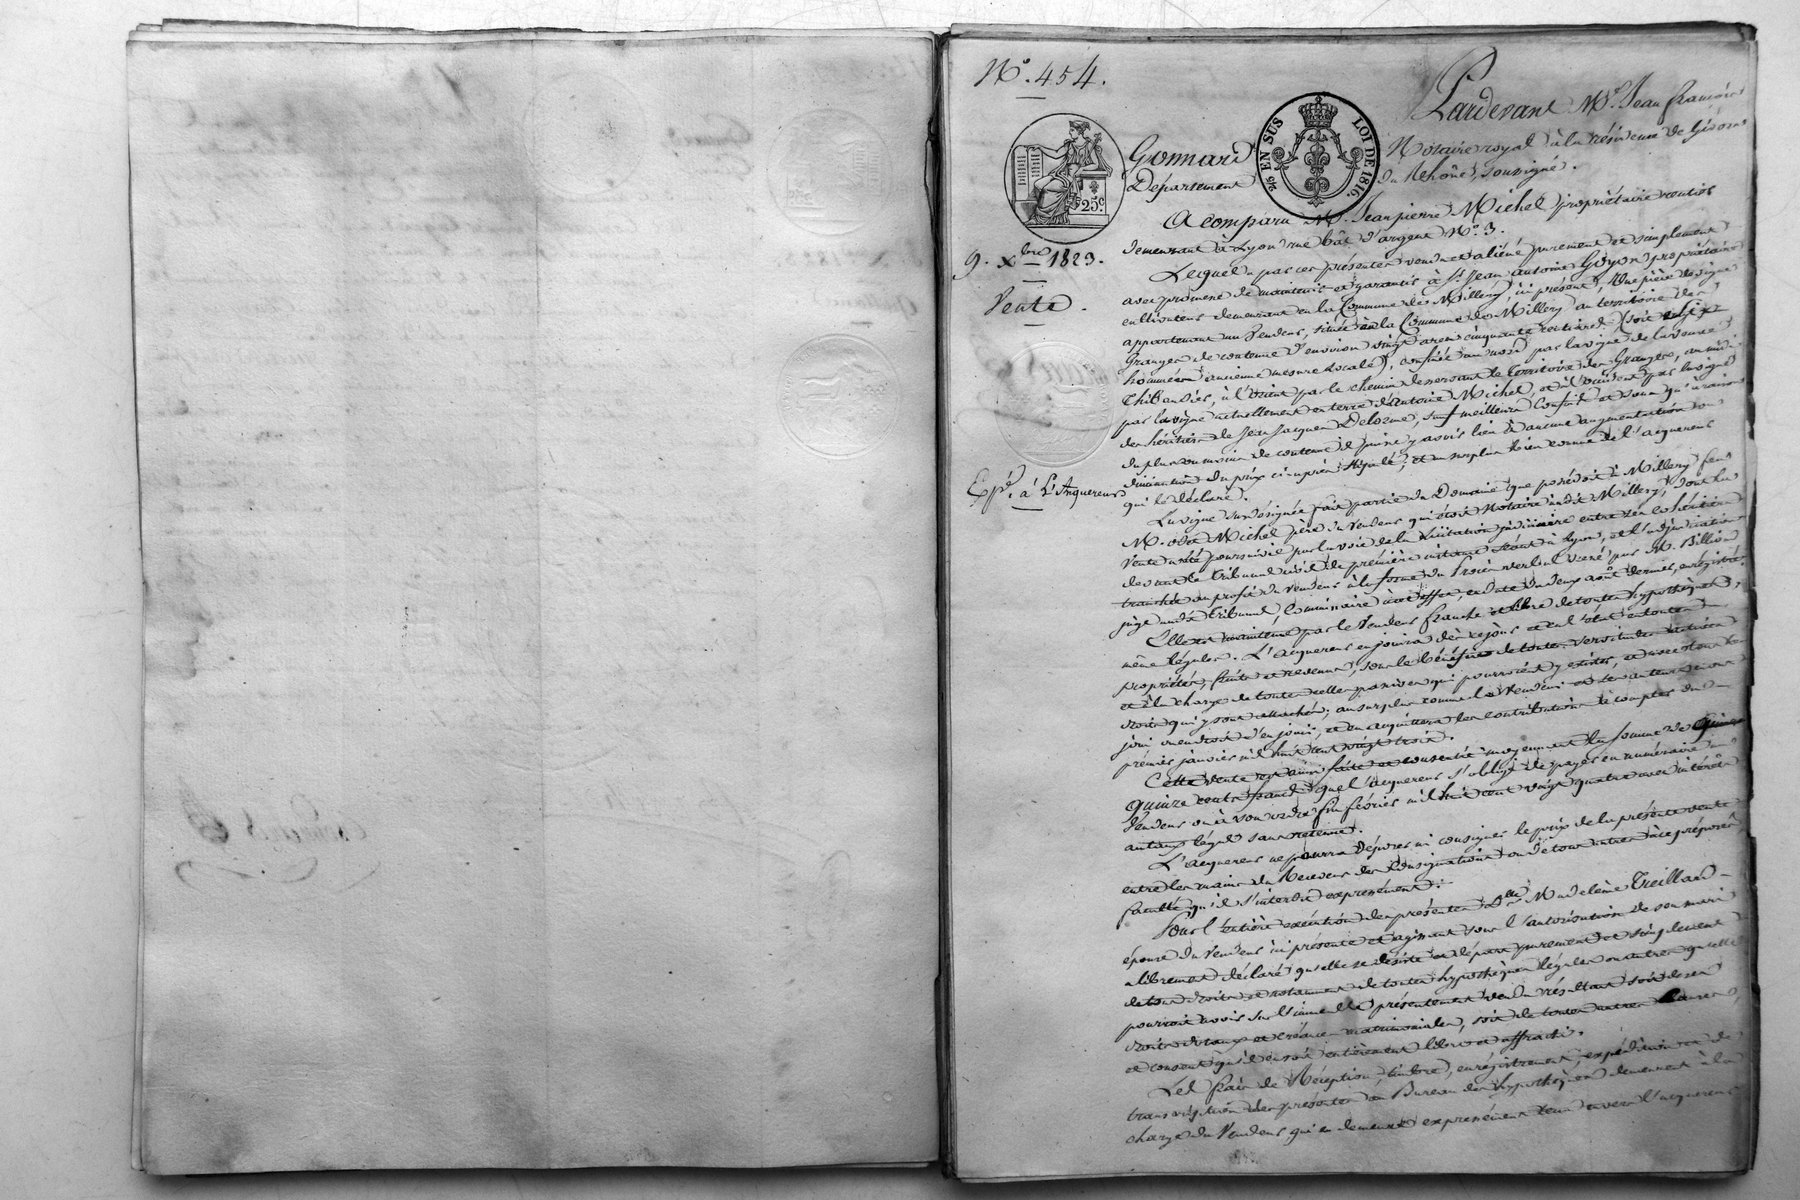 N°. 454.
Pardevant Me. Jean François
Gonnard Notaire royal à la résidence de Givors
Département du Rhône, soussigné.
25 EN SUS
LOI DE 1816.
25c.
A comparu Mr. Jean pierre Michel propriétaire rentier
demeurant à Lyon rue bât d'argent N°. 3.
9. Xbre 1823.
Vente.
Lequel a par ces présentes vendu et aliéné purement et simplement
avec promesse de maintenir et garantir à Sr. Jean antoine Goyon propriétaire
cultivateur demeurant en la Commune de Millery, ici présent, Une pièce de vigne
appartenant au Vendeur, située en la Commune de Millery au territoire des
Granges de contenue d'environ vingt ares cinquante centiares (soit
hommées ancienne mesure locale), confinée au nord par la vigne de la veuve
à l'orient par le chemin desservant le territoire des Granges, au midi
par la vigne actuellement en terre d'antoine Michel, et à l'occident par la vigne
des héritiers de Jean Jacques Delorme, sauf meilleurs confins et sans qu'à raison
du plus ou moins de contenue il puisse y avoir lieu à aucune augmentation ou
diminution du prix ci-après stipulé, et au surplus bien connue de l'acquereur
qui le déclare.
Epé. à L'Acquereur
La vigne susdésignée fait partie du Domaine que possédoit à Millery feu
M. Michel père du Vendeur qui étoit Notaire audit Millery, dont la
Vente a été poursuivie par la voie de la licitation judiciaire entre ses cohéritiers
devant le tribunal civil de première instance séant à Lyon, et l'adjudication
tranchée au profit du Vendeur à la forme du Procès verbal dressé par M. Billion
juge audit tribunal, Commissaire à cet effet, en date du deux août dernier, enregistré.
Elle est maintenue par le Vendeur franche et libre de toutes hypothèques,
même légales. L'acquereur en jouira dès ce jour et en l'état en toutes
propriétés, fruits et revenus, sous le bénéfice de toutes servitudes actives
et à la charge de toutes celles passives qui pourroient y exister, et avec tous les
droits qui y sont attachés; au surplus comme le Vendeur et ses auteurs en ont
joui ou eu droit d'en jouir, et en acquittera les contributions à compter du
premier janvier mil huit cent vingt trois.
Cette vente est ainsi faite et consentie moyennant la somme de
Quinze cents francs que l'acquereur s'oblige de payer en numéraire au
Vendeur ou à son ordre fin février mil huit cent vingt quatre avec intérêts
au taux légal sans retenue.
L'acquereur ne pourra déposer ni consigner le prix de la présente vente
entre les mains du Receveur des Consignations ou de tous autres à ce préposés,
faculté qu'il s'interdit expressément.
Pour l'entière exécution des présentes Dme Madeleine Treillard
épouse du Vendeur ici présente et agissant sous l'autorisation de son mari
a librement déclaré qu'elle se désiste et départ purement et simplement
de tous droits et notamment de toutes hypothèques légales ou autres qu'elle
pourroit avoir sur l'immeuble présentement vendu résultant soit de ses
droits dotaux et créances matrimoniales, soit de toutes autres causes,
et consent qu'il en soit entièrement libre et affranchi.
Les frais de Réception, timbre, enregistrement, expédition et de
transcription des présentes au Bureau des hypothèques demeurent à la
charge du Vendeur, qui en demeure expressément tenu envers l'acquereur